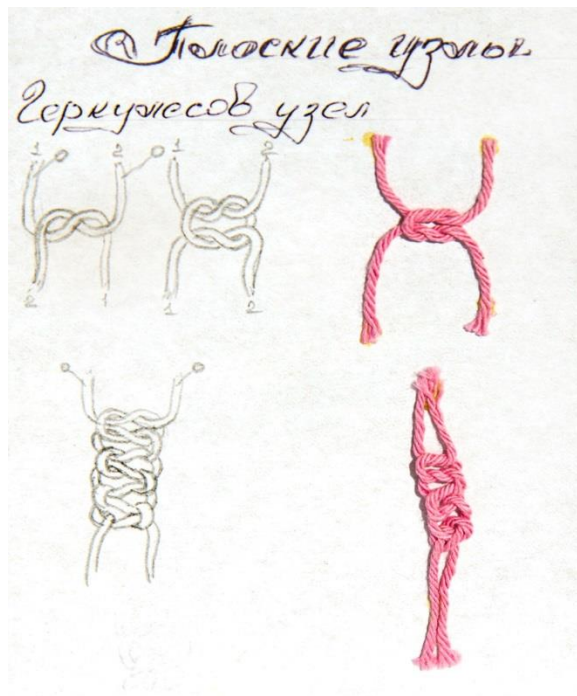 Плоские узлы
Геркулесов узел
1 2 1 2
2 1 1 2